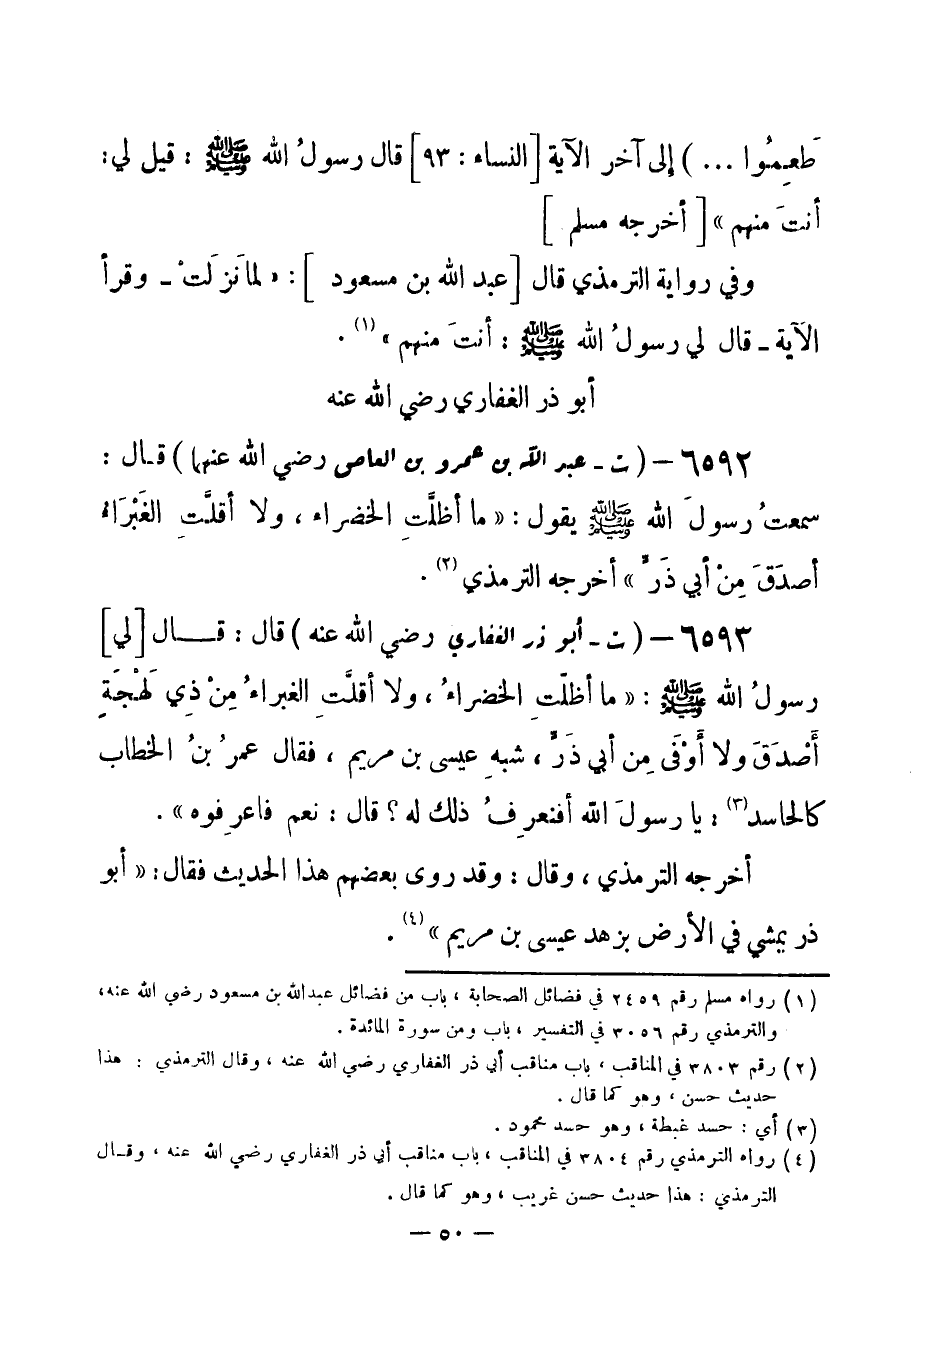 طَعِمُوا ... ) إلى آخر الآية [النساء : ٩٣] قال رسولُ الله ﷺ : قيل لي :
أنتَ منهم » [ أخرجه مسلم ]
وفي رواية الترمذي قال [عبد الله بن مسعود ] : « لما نَزَلَتْ ـ وقرأ
الآية ـ قال لي رسولُ الله ﷺ : أنتَ منهم »(١) .
أبو ذر الغفاري رضي الله عنه
٦٥٩٢ – ( ت ـ عبد الله بن عمرو بن العاص رضي الله عنهما ) قـال :
سمعتُ رسولَ الله ﷺ يقول : « ما أظلَّتِ الخضراء ، ولا أقلَّتِ الغَبْرَاءُ
أصدَقَ مِنْ أبي ذَرٍّ » أخرجه الترمذي(٢) .
٦٥٩٣ – ( ت ـ أبو ذر الغفاري رضي الله عنه ) قال : قــــال [لي]
رسولُ الله ﷺ : « ما أظلّتِ الخضراءُ ، ولا أقلَّتِ الغبراءُ مِنْ ذِي لَهْجَةٍ
أَصْدَقَ ولا أَوْفَى مِن أبي ذَرٍّ ، شبهِ عيسى بن مريم ، فقال عمرُ بنُ الخطاب
كالحاسد(٣) : يا رسولَ الله أفنعرِفُ ذلك له ؟ قال : نعم فاعرِفوه » .
أخرجه الترمذي ، وقال : وقد روى بعضهم هذا الحديث فقال : « أبو
ذر يمشي في الأرض بزهد عيسى بن مريم »(٤) .
(١) رواه مسلم رقم ٢٤٥٩ في فضائل الصحابة ، باب من فضائل عبدالله بن مسعود رضي الله عنه ،
والترمذي رقم ٣٠٥٦ في التفسير ، باب ومن سورة المائدة .
(٢) رقم ٣٨٠٣ في المناقب ، باب مناقب أبي ذر الغفاري رضي الله عنه ، وقال الترمذي : هذا
حديث حسن ، وهو كما قال .
(٣) أي : حسد غبطة ، وهو حسد محمود .
(٤) رواه الترمذي رقم ٣٨٠٤ في المناقب ، باب مناقب أبي ذر الغفاري رضي الله عنه ، وقـال
الترمذي : هذا حديث حسن غريب ، وهو كما قال .
— ٥٠ —